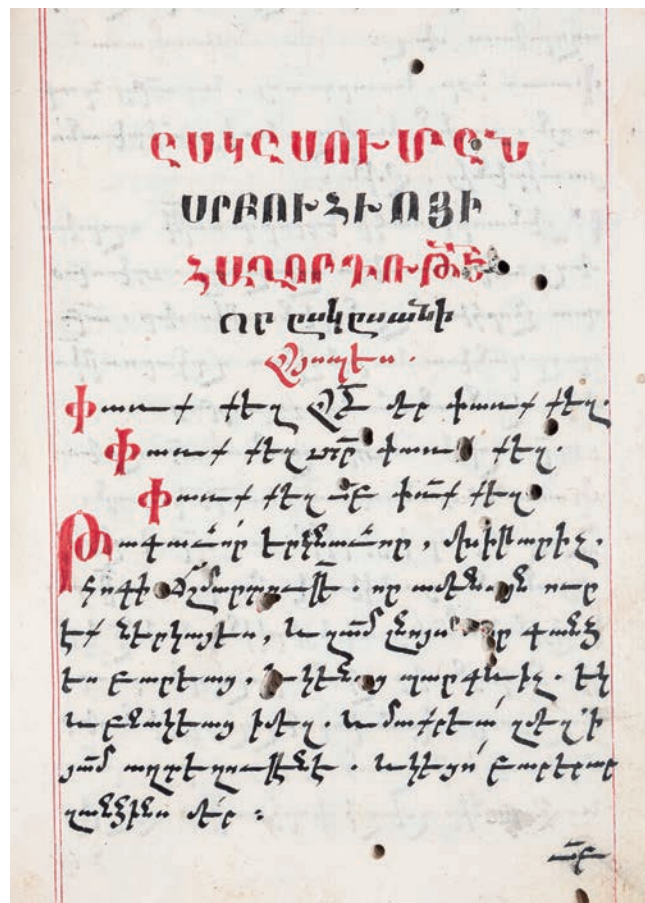 ԸՍԿԸՍՈՒՄԸՆ
ՍՐԲՈՒՀՒՈՅԻ
ՀԱՂՈՐԴՈՒԹԵ
Որ ըսկըսանի
Այսպես.
Փառք քեզ ԱԾ մեր փառք քեզ.
Փառք քեզ տր փառք քեզ.
Փառք քեզ սբ փռք քեզ
Թագաւոր երկնաւոր, մխիթարիչ.
հոգի ճշմարտութե. որ ամենայն ուր
եք ներկայես, և զամ լնուս որ գանձ
ես բարեաց, և կենաց պարգևիչ. եկ
և բնակեաց ի մեզ. և մաքրեա զմեզ ՛ի
յամ աղտեղութենէ. և կեցո բարերար
զանձինս մեր։
սբ